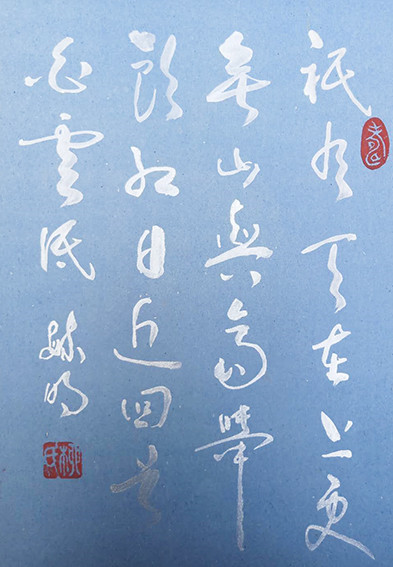 祇有天在上更
無山與齊舉
頭紅日近回首
白雲低